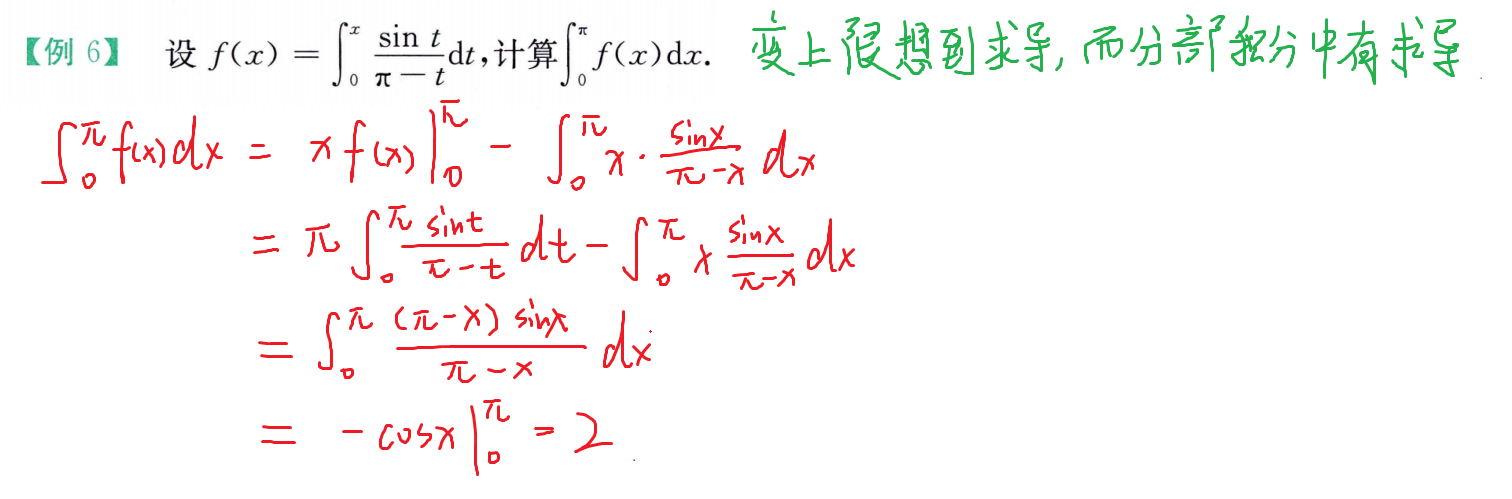 【例 6】 设 f(x) = ∫₀ˣ (sin t)/(π − t) dt,计算∫₀^π f(x)dx. 变上限想到求导, 而分部积分中有求导
∫₀^π f(x)dx = x f(x)|₀^π − ∫₀^π x · (sinx)/(π−x) dx
= π ∫₀^π (sint)/(π−t) dt − ∫₀^π x (sinx)/(π−x) dx
= ∫₀^π ((π−x) sinx)/(π−x) dx
= −cosx|₀^π = 2